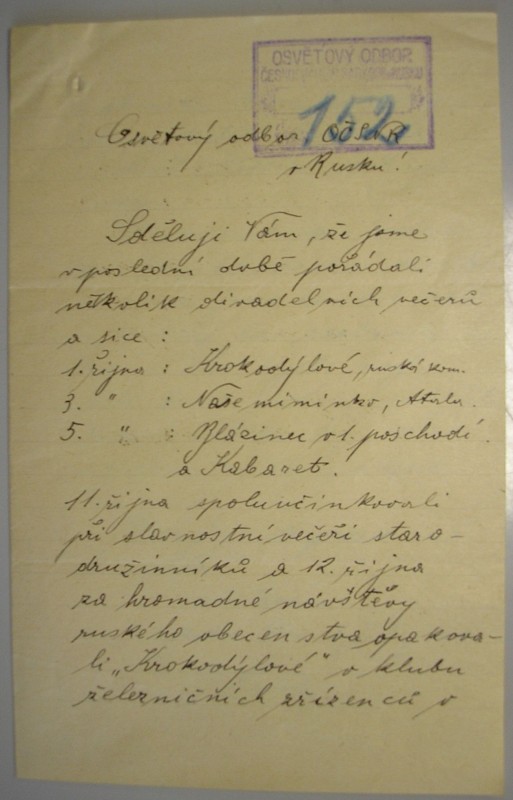 OSVĚTOVÝ ODBOR
152
Osvětový odbor OČSNR
v Rusku!
Sděluji Vám, že jsme
v poslední době pořádali
několik divadelních večerů
a sice :
1. října : Krokodýlové, ruská kom.
3. " : Naše miminko, Atala.
5. " : Blázinec v 1. poschodí.
a Kabaret.
11. října spoluučinkovali
při slavnostní večeři staro-
družinníků a 12. října
za hromadné návštěvy
ruského obecenstva opakova-
li „Krokodýlové" v klubu
železničních zřízenců v